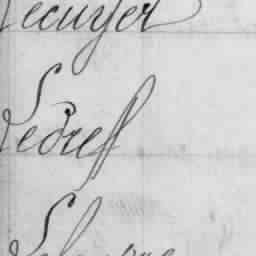 Lecuyer
Ledreff